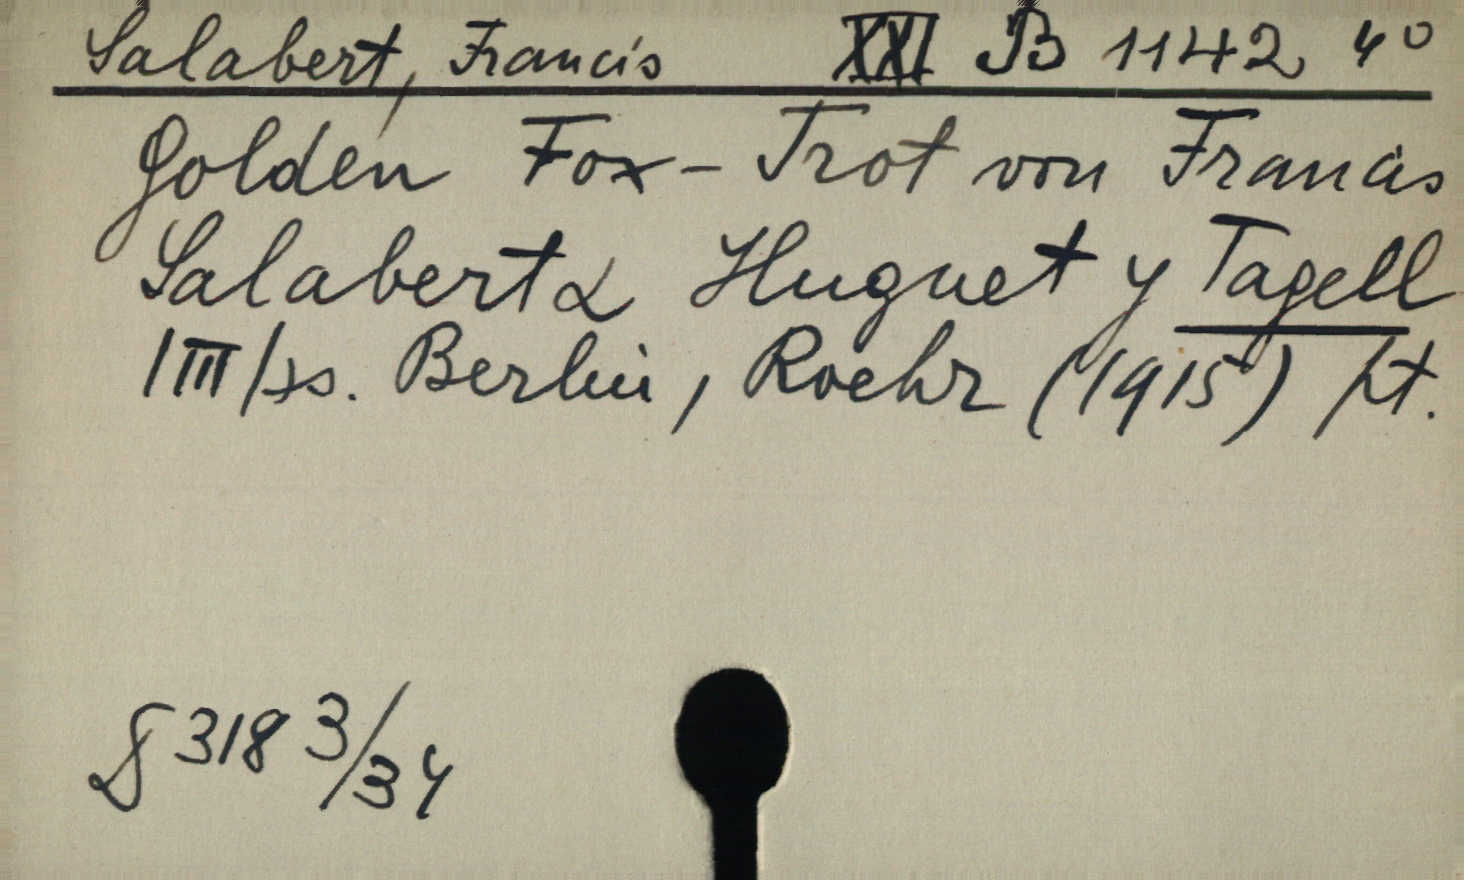 Salabert, Francis XXI B 1142 4°
Golden Fox-Trot von Francis
Salabert & Huguet y Tagell
/III/ss. Berlin, Roehr (1915) pt.
§ 318 3/34